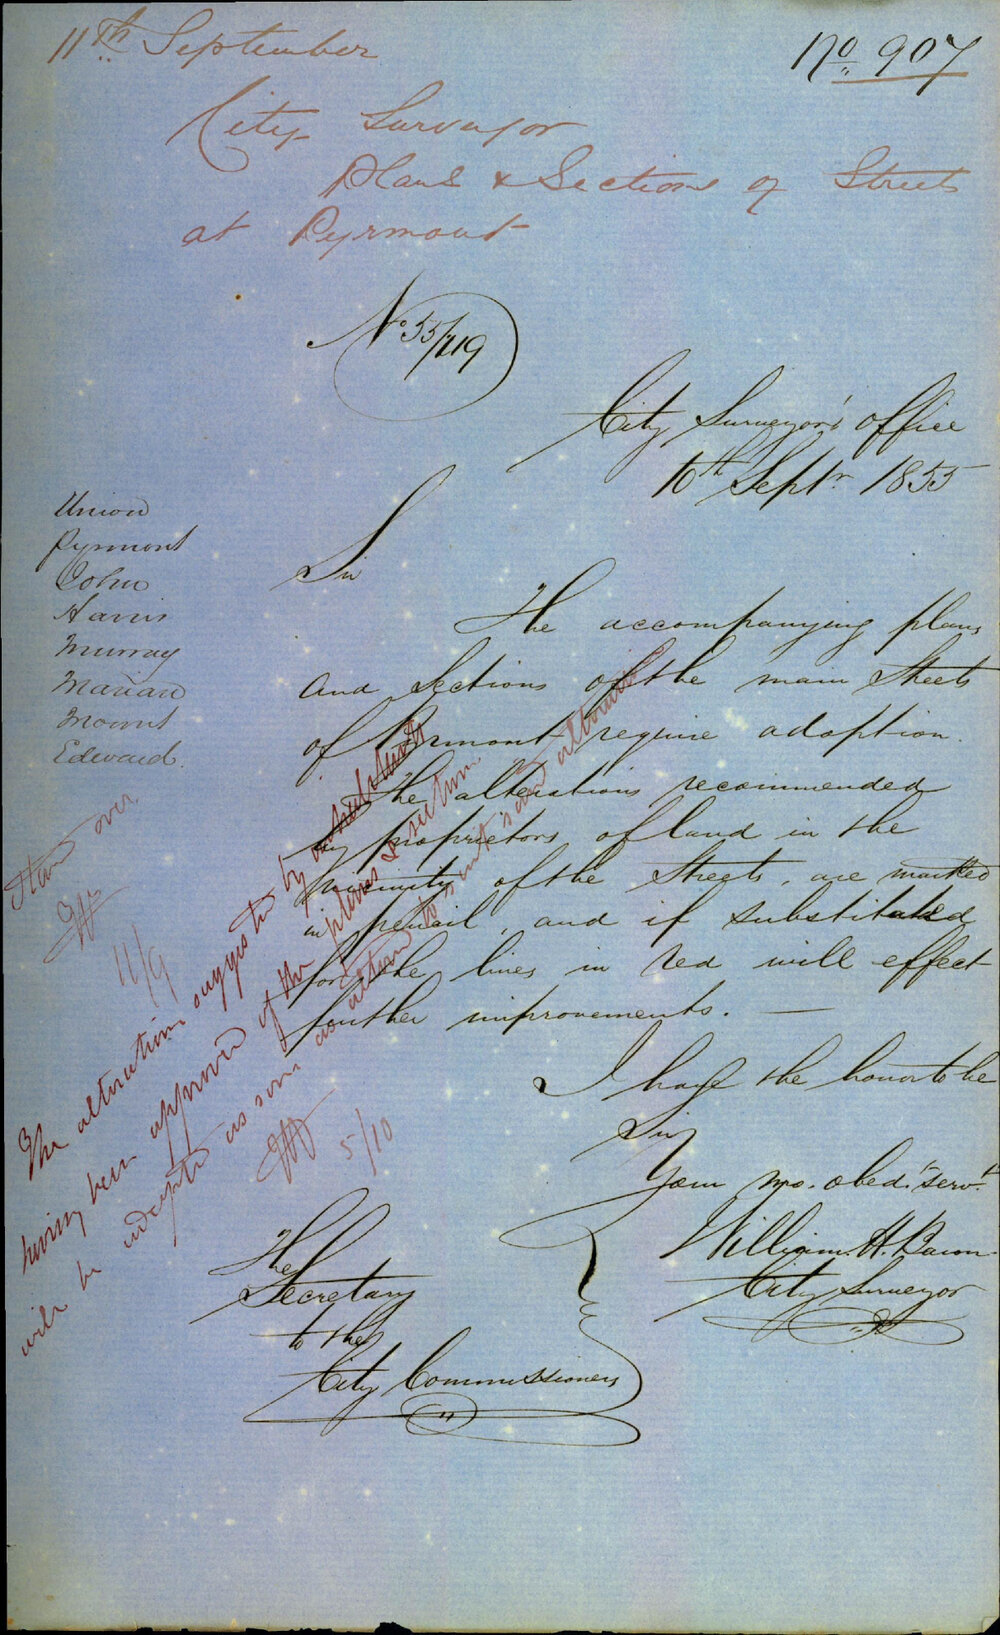 11th September
No 907
City Surveyor
Plans & Sections of Streets
at Pyrmont
No 55/719
City Surveyor's office
10th Septr 1855
Union
Pyrmont
John
Harris
Murray
Marian
Mount
Edward
Sir
The accompanying plans
and Sections of the main Streets
of Pyrmont require adoption.
The alterations recommended
by proprietors of land in the
proximity of the Streets, are marked
in pencil, and if substituted
for the lines in red will effect
further improvements. —
I have the honor to be
Sir
Your mo. obed. servt
William H. Baron
City Surveyor
The
Secretary
to the
City Commissioners
Stand over
11/9
The alterations suggested by
having been approved of the plans & section
will be adopted as soon as altered to
5/10